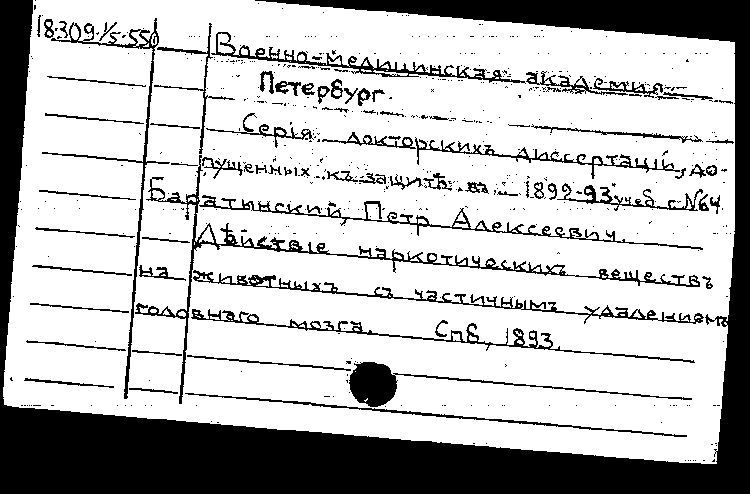 18.309.1/5-550
Военно-медицинская академия.
Петербург.
Серія докторскихъ диссертацій, до-
пущенныхъ къ защитѣ въ 1892-93 учеб. г. №64
Баратынский, Петр Алексеевич.
Дѣйствіе наркотическихъ веществъ
на животныхъ съ частичнымъ удаленіемъ
головнаго мозга. Спб, 1893.